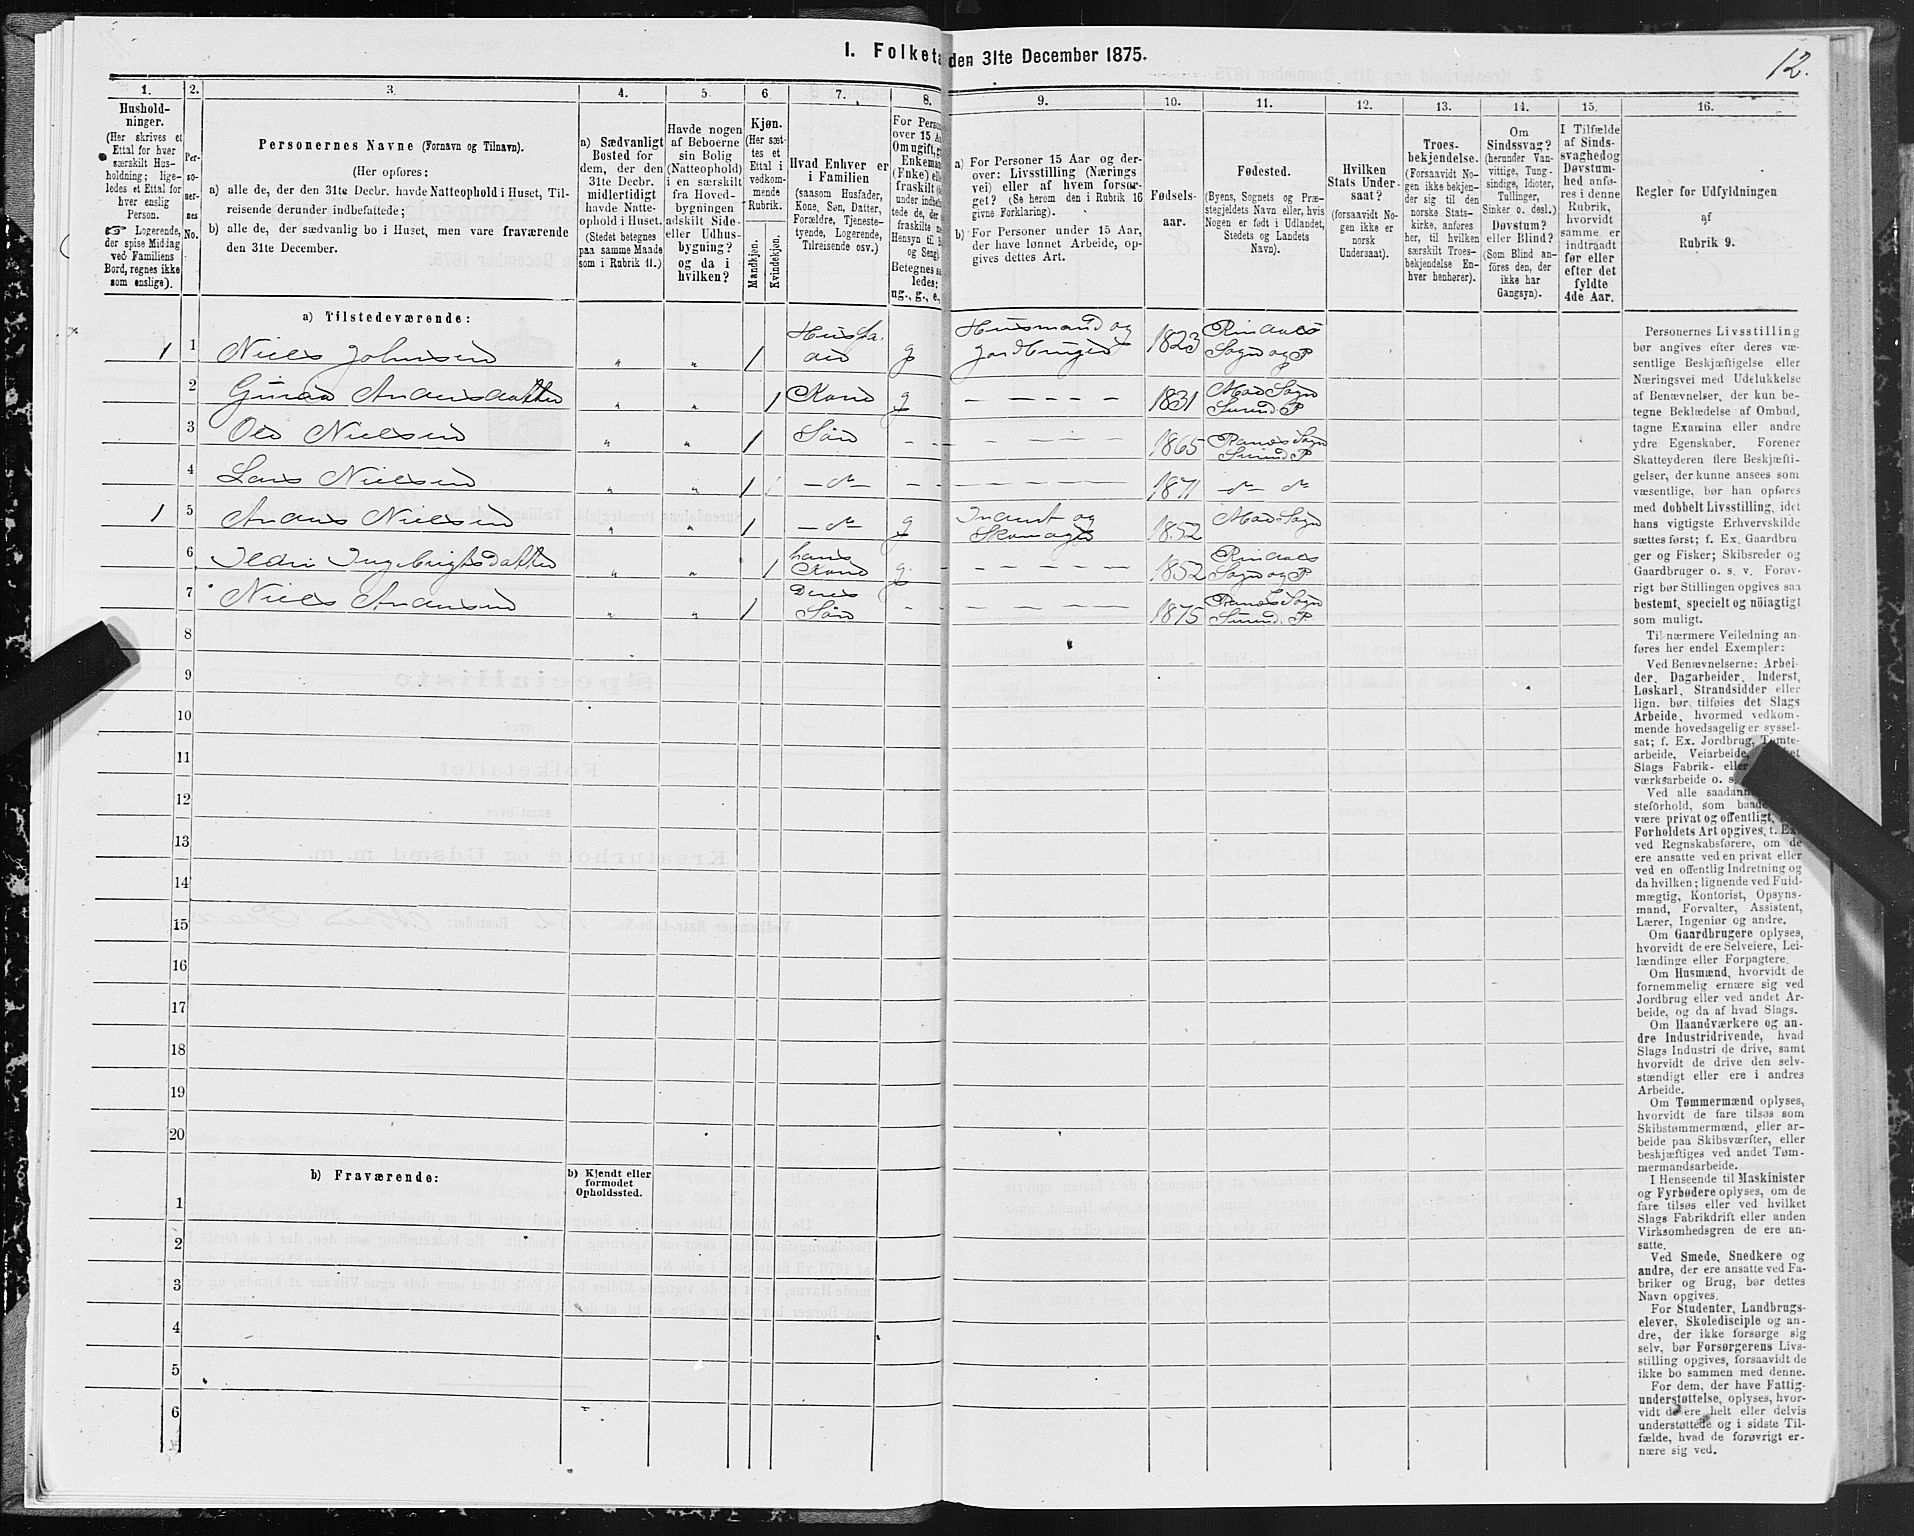 I. Folketa
den 31te December 1875.
12.
1.
Hushold-
ninger.
(Her skrives et
Ettal for hver
særskilt Hus-
holdning; lige-
ledes et Ettal for
hver enslig
Person.
☞ Logerende,
der spise Middag
ved Familiens
Bord, regnes ikke
som enslige).
2.
Per-
so-
ner-
nes
No.
3.
Personernes Navne (Fornavn og Tilnavn).
(Her opføres:
a) alle de, der den 31te Decbr. havde Natteophold i Huset, Til-
reisende derunder indbefattede;
b) alle de, der sædvanlig bo i Huset, men vare fraværende
den 31te December.
4.
a) Sædvanligt
Bosted for
dem, der den
31te Decbr.
midlertidigt
havde Natte-
ophold i Huset.
(Stedet betegnes
paa samme Maade
som i Rubrik 11.)
5.
Havde nogen
af Beboerne
sin Bolig
(Natteophold)
i en særskilt
fra Hoved-
bygningen
adskilt Side-
eller Udhus-
bygning?
og da i
hvilken?
6.
Kjøn.
(Her sæt-
tes et
Ettal i
vedkom-
mende
Rubrik.
Mandkjøn.
Kvindekjøn.
7.
Hvad Enhver er
i Familien
(saasom Husfader,
Kone, Søn, Datter,
Forældre, Tjeneste-
tyende, Logerende,
Tilreisende osv.)
8.
For Person
over 15 A
Om ugift, g
Enkeman
(Enke) eller
fraskilt
ledes:
ug., g., e.,
9.
a) For Personer 15 Aar og der-
over: Livsstilling (Nærings
vei) eller af hvem forsør-
get? (Se herom den i Rubrik 16
givne Forklaring).
b) For Personer under 15 Aar,
der have lønnet Arbeide, op-
gives dettes Art.
10.
Fødsels-
aar.
11.
Fødested.
(Byens, Sognets og Præ-
stegjeldets Navn eller, hvis
Nogen er født i Udlandet,
Stedets og Landets
Navn).
12.
Hvilken
Stats Under-
saat?
(forsaavidt No-
gen ikke er
norsk
Undersaat).
13.
Troes-
bekjendelse.
(Forsaavidt No-
gen ikke bekjen-
der sig til den
norske Stats-
kirke, anføres
her, til hvilken
særskilt Troes-
bekjendelse En-
hver henhører).
14.
Om
Sindssvag?
(herunder Van-
vittige, Tung-
sindige, Idioter,
Tullinger,
Sinker o. desl.)
Døvstum?
eller Blind?
(Som Blind an-
føres den, der
ikke har
Gangsyn).
15.
I Tilfælde
af Sinds-
svaghedog
Døvstum-
hed anfø-
res i denne
Rubrik,
hvorvidt
samme er
indtraadt
før eller
efter det
fyldte
4de Aar.
16.
Regler for Udfyldningen
af
Rubrik 9.
a) Tilstedeværende:
1 1 Niels Johnsen " " 1 Husfa- der g Husmand og Jordbruger 1823 Rindals Sogn og P
2 Guroe Andersdatter " " 1 Kone g — — — — — 1831 Moe Sogn Surend. P
3 Ole Nielsen " " 1 Søn — — — — — 1865 Ranes Sogn Surend. P
4 Lars Nielsen " " 1 — do — — — — — 1871 — do — do
1 5 Anders Nielsen " " 1 — do — g Inderst og Skomager 1852 Moe Sogn
6 Ildri Ingebrigtsdatter " " 1 hans Kone g. — — — — — 1852 Rindals Sogn og P
7 Niels Andersen " " 1 Deres Søn — — — — — 1875 Ranes Sogn Surend. P
8
9
10
11
12
13
14
15
16
17
18
19
20
b) Fraværende:
b) Kjendt eller
formodet
Opholdssted.
1
2
3
4
5
6
Personernes Livsstilling
bør angives efter deres væ-
sentlige Beskjæftigelse eller
Næringsvei med Udelukkelse
af Benævnelser, der kun be-
tegne Beklædelse af Ombud,
tagne Examina eller andre
ydre Egenskaber. Forener
Skatteyderen flere Beskjæfti-
gelser, der kunne ansees som
væsentlige, bør han opføres
med dobbelt Livsstilling, idet
hans vigtigste Erhvervskilde
sættes først; f. Ex. Gaardbru-
ger og Fisker; Skibsreder og
Gaardbruger o. s. v. Forøv-
rigt bør Stillingen opgives saa
bestemt, specielt og nöiagtigt
som muligt.
Til nærmere Veiledning an-
føres her endel Exempler:
Ved Benævnelserne: Arbei-
der, Dagarbeider, Inderst,
Løskarl, Strandsidder eller
lign. bør tilføies det Slags
Arbeide, hvormed vedkom-
mende hovedsagelig er syssel-
sat; f. Ex. Jordbrug, Tomte-
arbeide, Veiarbeide,
Slags Fabrik- eller
værksarbeide o. s.
Ved alle saadan
steforhold, som baade
være privat og offentligt,
Forholdets Art opgives, t. Ex.
ved Regnskabsførere, om de
ere ansatte ved en privat eller
ved en offentlig Indretning og
da hvilken; lignende ved Fuld-
mægtig, Kontorist, Opsyns-
mand, Forvalter, Assistent,
Lærer, Ingeniør og andre.
Om Gaardbrugere oplyses,
hvorvidt de ere Selveiere, Lei-
lændinge eller Forpagtere.
Om Husmænd, hvorvidt de
fornemmelig ernære sig ved
Jordbrug eller ved andet Ar-
beide, og da af hvad Slags.
Om Haandværkere og an-
dre Industridrivende, hvad
Slags Industri de drive, samt
hvorvidt de drive den selv-
stændigt eller ere i andres
Arbeide.
Om Tømmermænd oplyses,
hvorvidt de fare tilsøs som
Skibstømmermænd, eller ar-
beide paa Skibsværfter, eller
beskjæftiges ved andet Tøm-
mermandsarbeide.
I Henseende til Maskinister
og Fyrbødere oplyses, om de
fare tilsøs eller ved hvilket
Slags Fabrikdrift eller anden
Virksomhedsgren de ere an-
satte.
Ved Smede, Snedkere og
andre, der ere ansatte ved Fa-
briker og Brug, bør dettes
Navn opgives.
For Studenter, Landbrugs-
elever, Skoledisciple og an-
dre, der ikke forsørge sig
selv, bør Forsørgerens Livs-
stilling opgives, forsaavidt de
ikke bo sammen med denne.
For dem, der have Fattig-
understøttelse, oplyses, hvor-
vidt de ere helt eller delvis
understøttede og i sidste Til-
fælde, hvad de forøvrigt er-
nære sig ved.